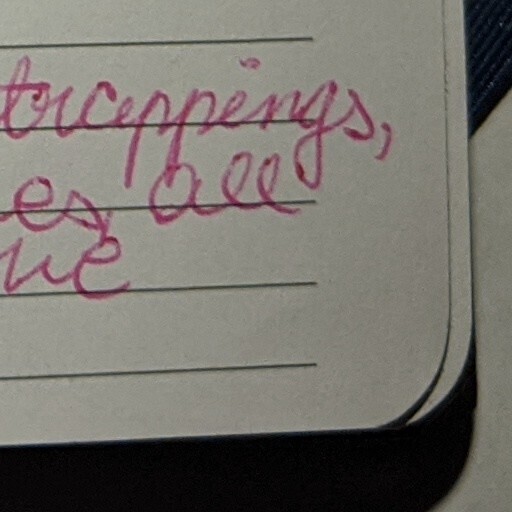 trappings,
es, all
ue